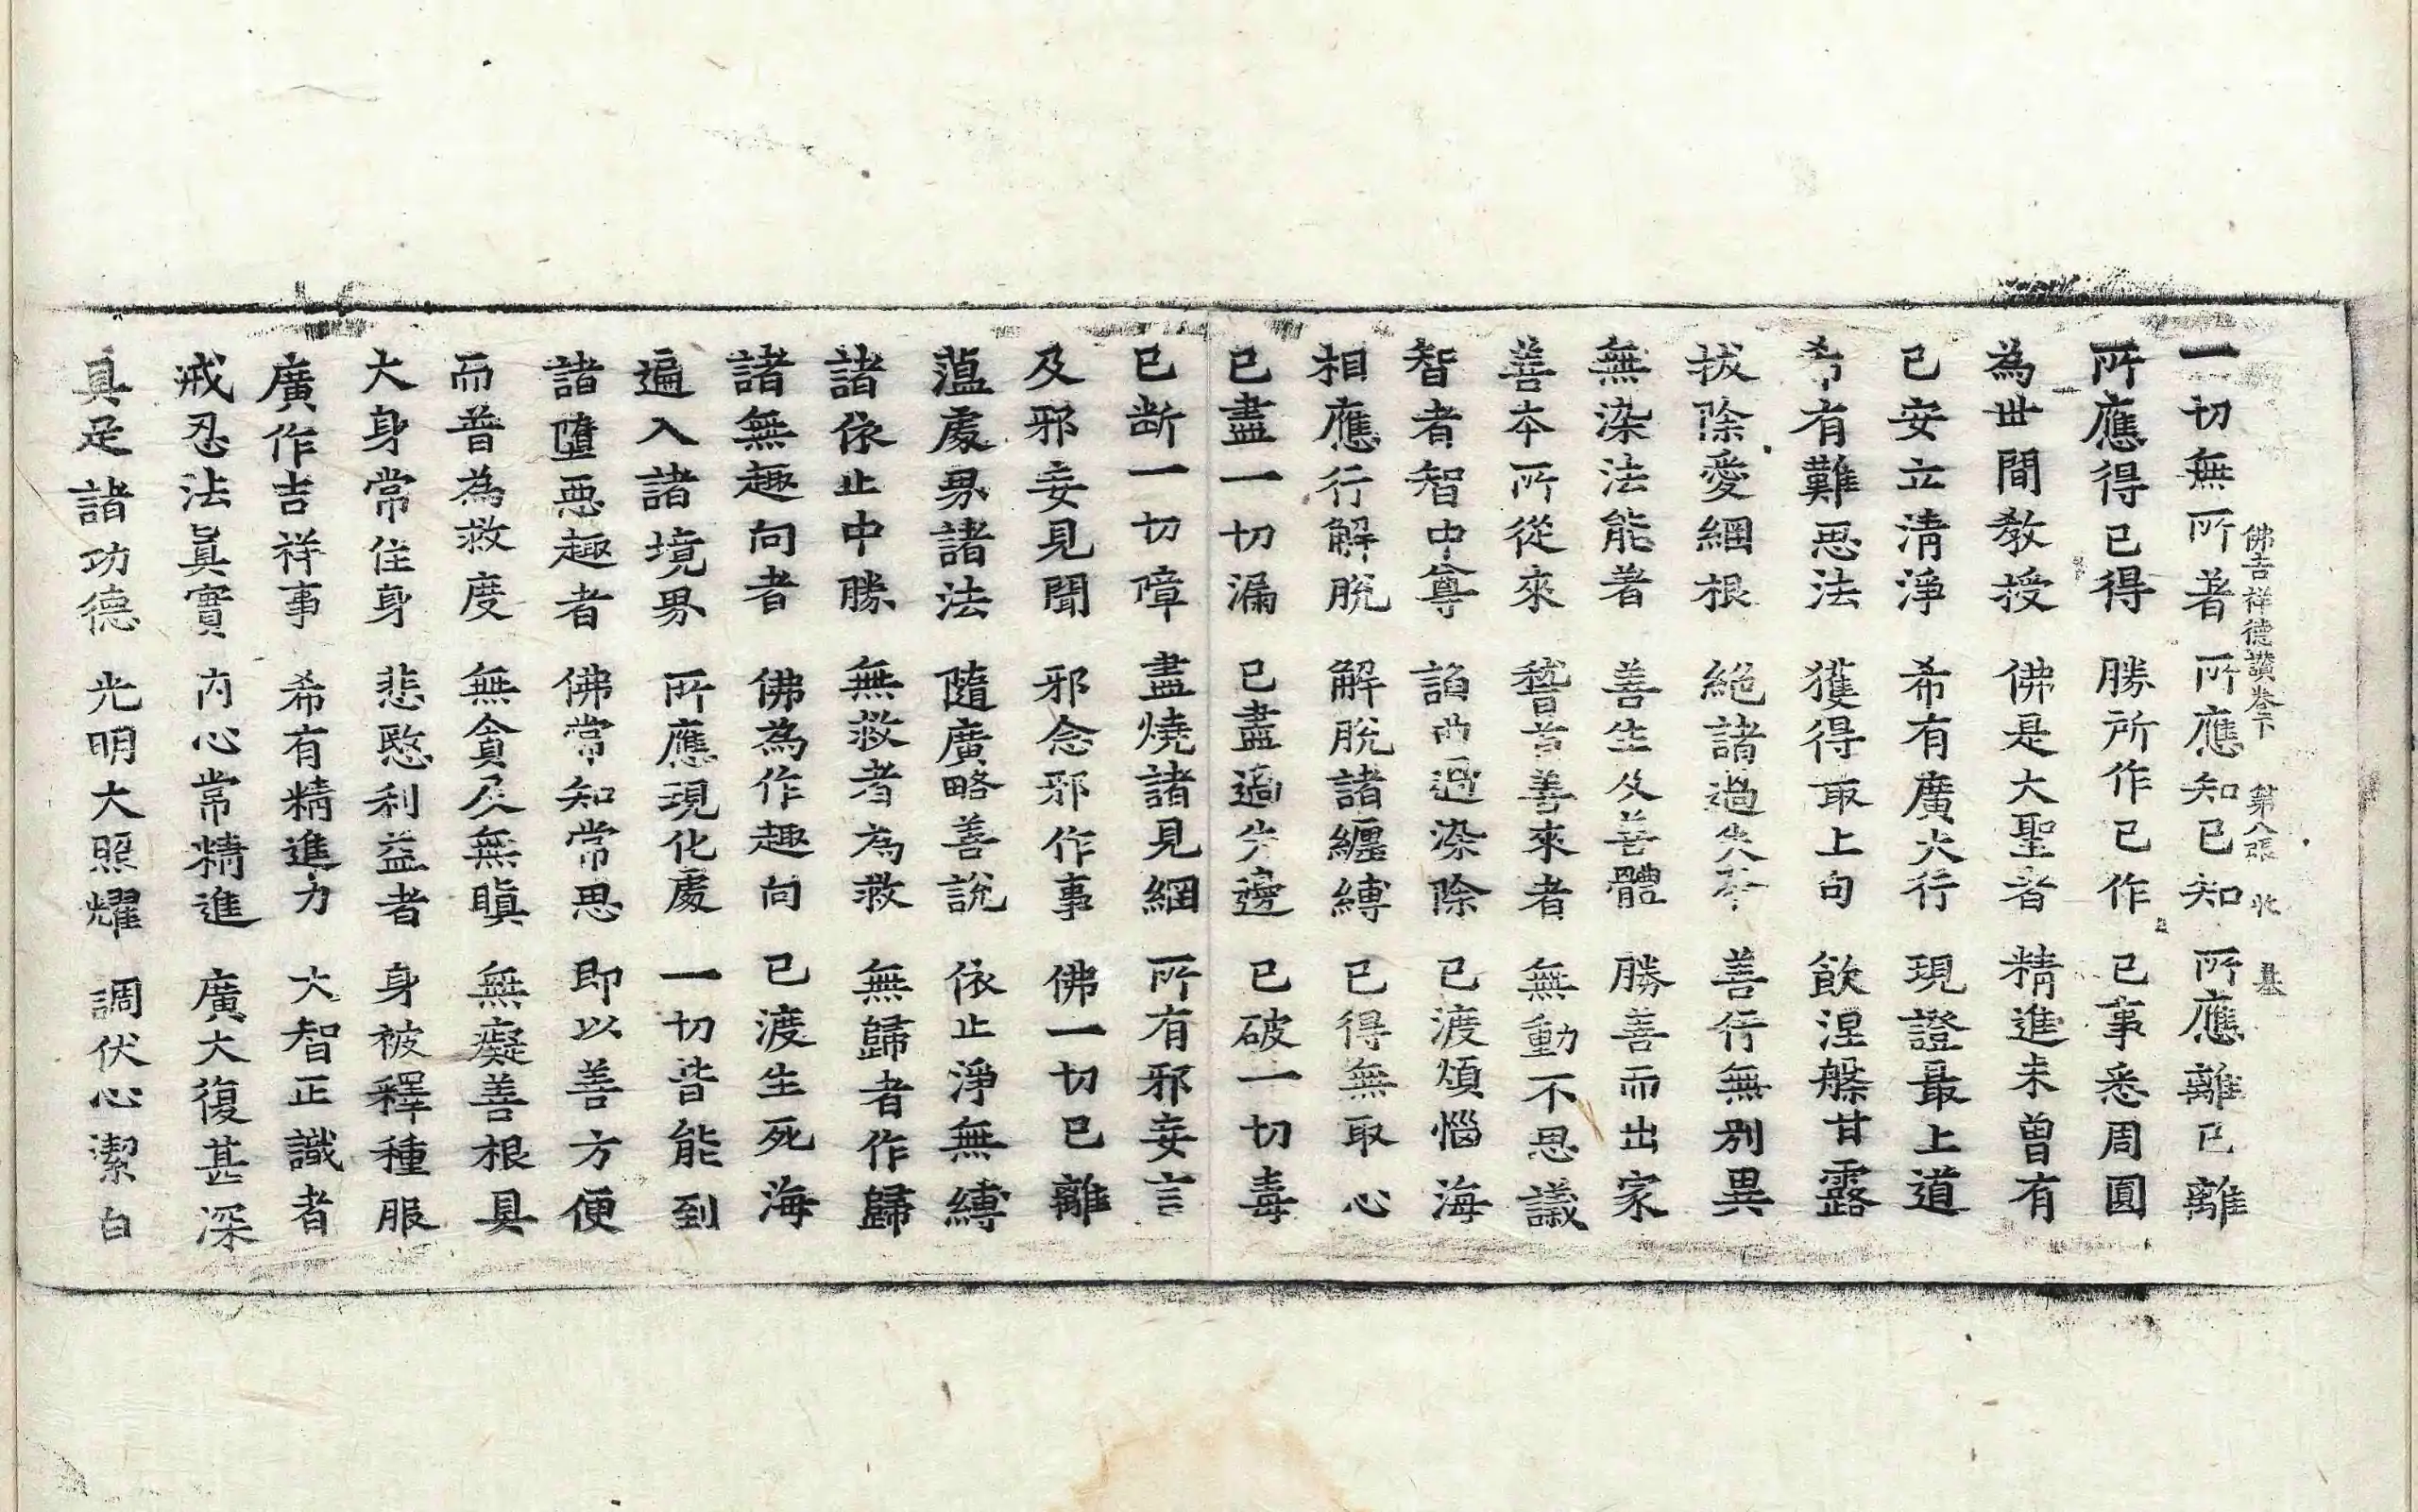 佛吉祥德讚卷下　第八張　收　基
一切無所著　所應知已知　所應離已離
所應得已得　勝所作已作　已事悉周圓
為世間教授　佛是大聖者　精進未曾有
已安立清淨　希有廣大行　現證最上道
希有難思法　獲得取上句　飲涅槃甘露
拔除愛綱根　絕諸過失本　善行無別異
無染法能著　善生及善體　勝善而出家
善本所從來　稽首善來者　無動不思議
智者智中尊　諂曲過染除　已渡煩惱海
相應行解脫　解脫諸纏縛　已得無取心
已盡一切漏　已盡過失邊　已破一切毒
已斷一切障　盡燒諸見綱　所有邪妄言
及邪妄見聞　邪念邪作事　佛一切已離
薀處界諸法　隨廣略善說　依止淨無縛
諸依止中勝　無救者為救　無歸者作歸
諸無趣向者　佛為作趣向　已渡生死海
遍入諸境界　所應現化處　一切皆能到
諸墮惡趣者　佛常知常思　即以善方便
而普為救度　無貪及無瞋　無癡善根具
大身常住身　悲愍利益者　身被釋種服
廣作吉祥事　希有精進力　大智正識者
戒忍法真實　內心常精進　廣大復甚深
具足諸功德　光明大照耀　調伏心潔白